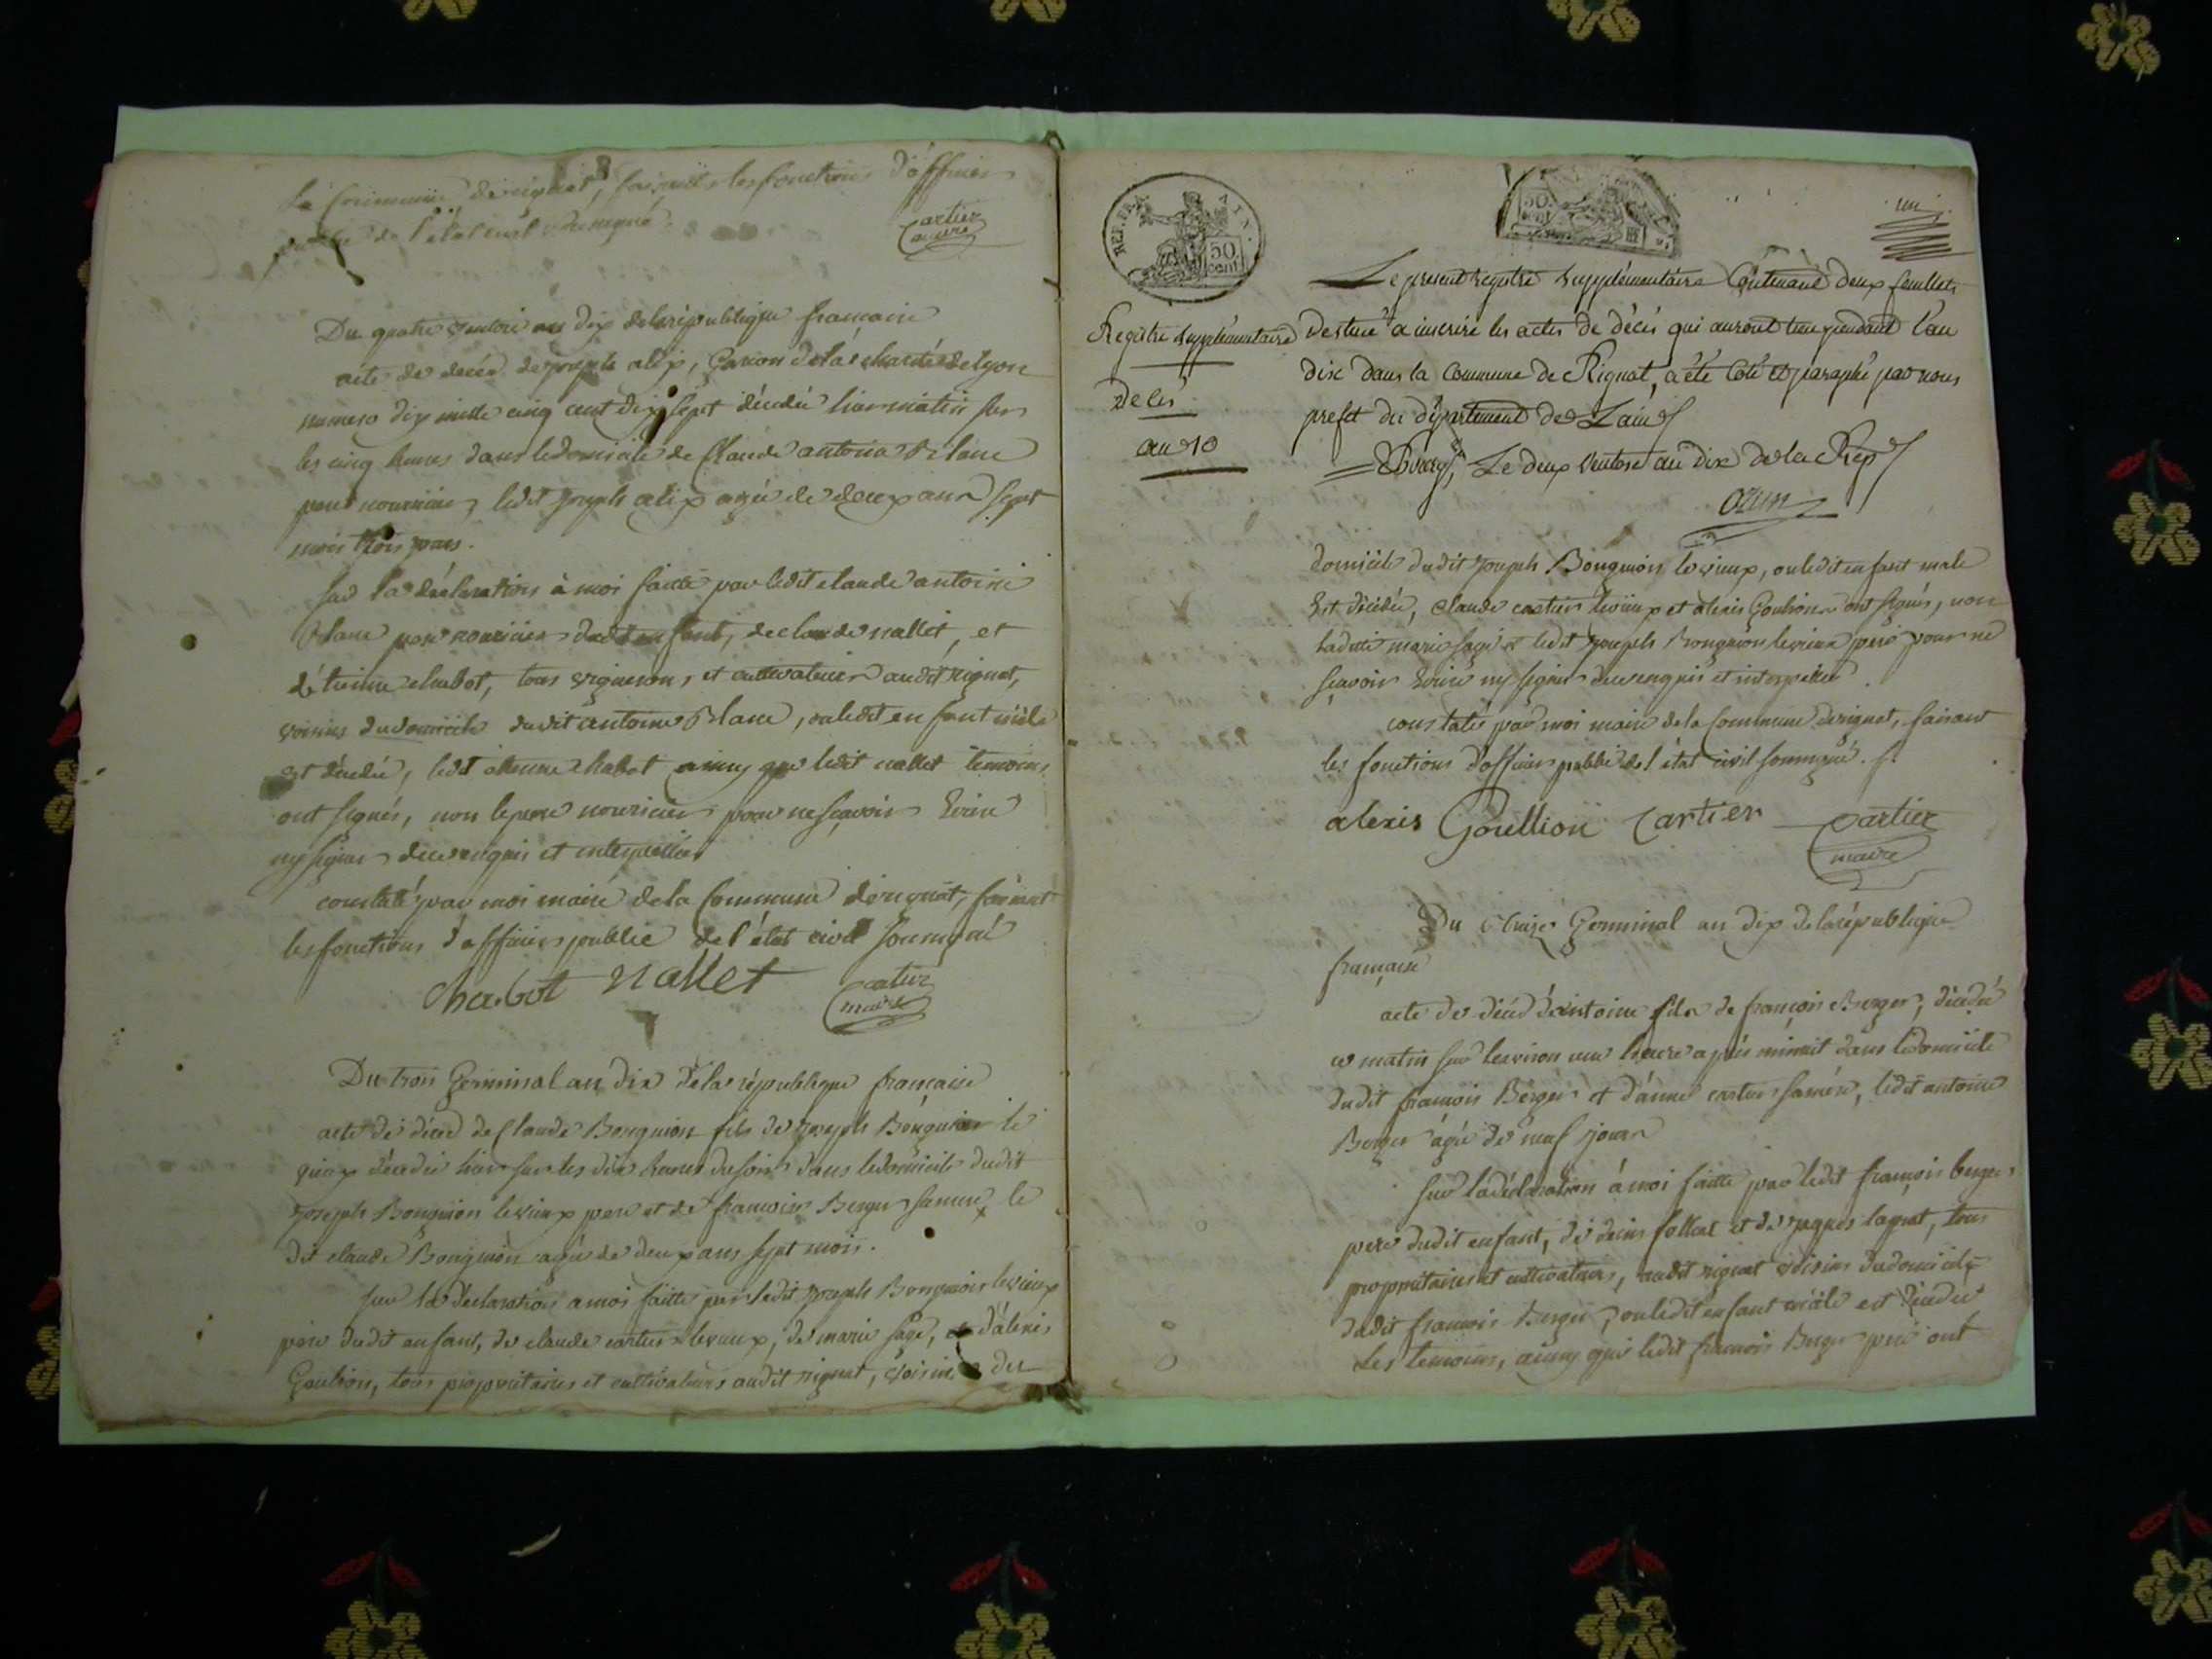 la Commune de rignat, faisant les fonctions d'officier
public de l'état civil soussigné
Cartier
maire
Du quatre ventose an dix de la république francaise
acte de décès de joseph alix, Garcon de la charité de lyon
numero dix mille cinq cent dix sept décédé hier matin sur
les cinq heures dans le domicile de Claude antoine Blanc
pere nourricier, ledit joseph alix agée de deux ans sept
mois trois jours.
sur la déclaration à moi faitte par ledit claude antoine
Blanc pere nouricier dudit enfant, de claude nallet, et
d'étienne chabot, tous vignerons et cultivateurs audit rignat,
voisins du domicile dudit antoine Blanc, ou ledit enfant mâle
est décédée, ledit étienne chabot ainsy que ledit nallet temoins
ont signés, non le pere nouricier pour ne sçavoir Ecrire
ny signer de ce enquis et interpellée
constaté par moi maire de la Commune de rignat, faisant
les fonctions d'officier public de l'état civil soussigné
Chabot nallet cartier
maire
Du trois Germinal an dix de la république francaise
acte de décès de Claude Bonguion fils de joseph Bonguion le
vieux décédée hier sur les dix heures du soir dans le domicile dudit
joseph Bonguion le vieux pere et de francoise Berger sa mere, le
dit claude Bonguion agée de deux ans sept mois.
sur la déclaration a moi faitte par ledit joseph Bonguion le vieux
père dudit enfant, de claude cartier le vieux, de marie sage, et d'alexis
Goulion, tous proprietaires et cultivateurs audit rignat, voisins du
REP. FRA. AIN.
50 cent
50 cent
un
Registre supplémentaire
Décès
an 10
Le present registre supplémentaire Contenant deux feuillets
destiné a inscrire les actes de décès qui auront lieu pendant l'an
dix dans la Commune de Rignat, a été Coté et paraphé par nous
prefet du département de L'ain
A Bourg, Le deux ventose an dix de la Rep
ozun
domicile dudit joseph Bonguion le vieux, ou ledit enfant male
Est décédée, claude cartier le vieux et alexis Goulion ont signés, non
ladite marie sage et ledit joseph Bonguion le vieux pere pour ne
sçavoir Ecrire ny signer de ce enquis et interpellée.
constatée par moi maire de la Commune de rignat, faisant
les fonctions d'officier public de l'état civil soussigné.
alexis Goullion Cartier Cartier
maire
Du Germinal an dix de la république
francaise
acte de décès d'antoine fils de françois Berger, décédé
ce matin sur Lenviron une heure après minuit dans le domicile
dudit francois Berger et d'anne cartier sa mère, ledit antoine
Berger agée de neuf jours
sur la déclaration à moi faitte par ledit françois berger
pere dudit enfant, de denis folleat et de jaques lagnat, tous
proprietaires et cultivateurs, audit rignat voisins du domicile
dudit francois Berger, ou ledit enfant mâle est décédé
Les temoins, ainsy que ledit francois Berger pere ont